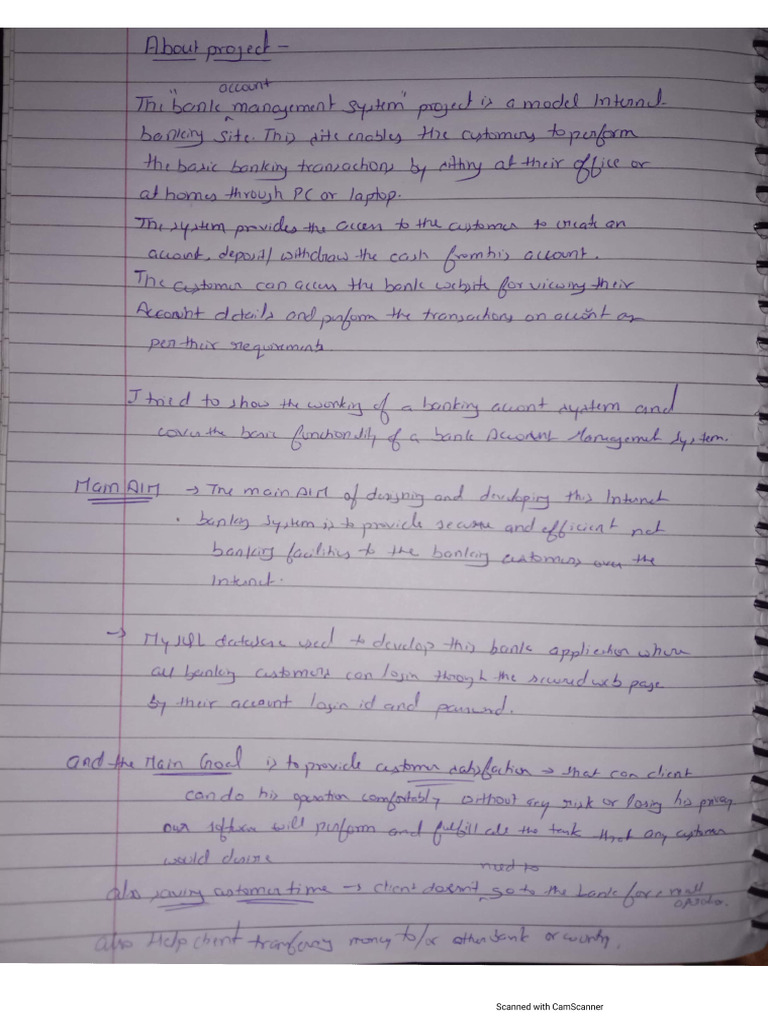 About project -
account
The "bank management system" project is a model Internet
banking site. This site enables the customers to perform
the basic banking transactions by sitting at their office or
at homes through PC or laptop.
The system provides the access to the customer to create an
account, deposit/withdraw the cash from his account.
The customer can access the bank website for viewing their
Account details and perform the transactions on account as
per their requirements.
I tried to show the working of a banking account system and
cover the basic functionality of a bank Account Management System.
Main AIM → The main AIM of designing and developing this Internet
banking system is to provide secure and efficient net
banking facilities to the banking customers over the
Internet.
→ MySQL database used to develop this bank application where
all banking customers can login through the secured web page
by their account login id and password.
and the Main Goal is to provide customer satisfaction → that can client
can do his operation comfortably without any risk or losing his privacy
our software will perform and fulfill all the task that any customer
would desire
need to
also saving customer time → client doesn't go to the bank for small
operation.
also Help client transferring money to/or other bank or country.
Scanned with CamScanner